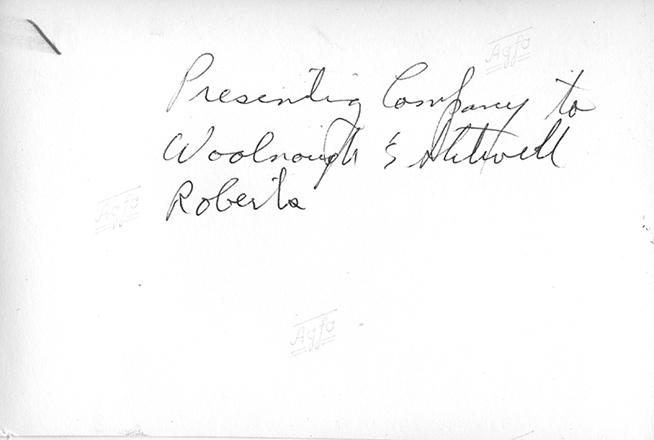 Agfa
Presenting Company to
Woolnough & Stilwell
Roberts
Agfa
Agfa